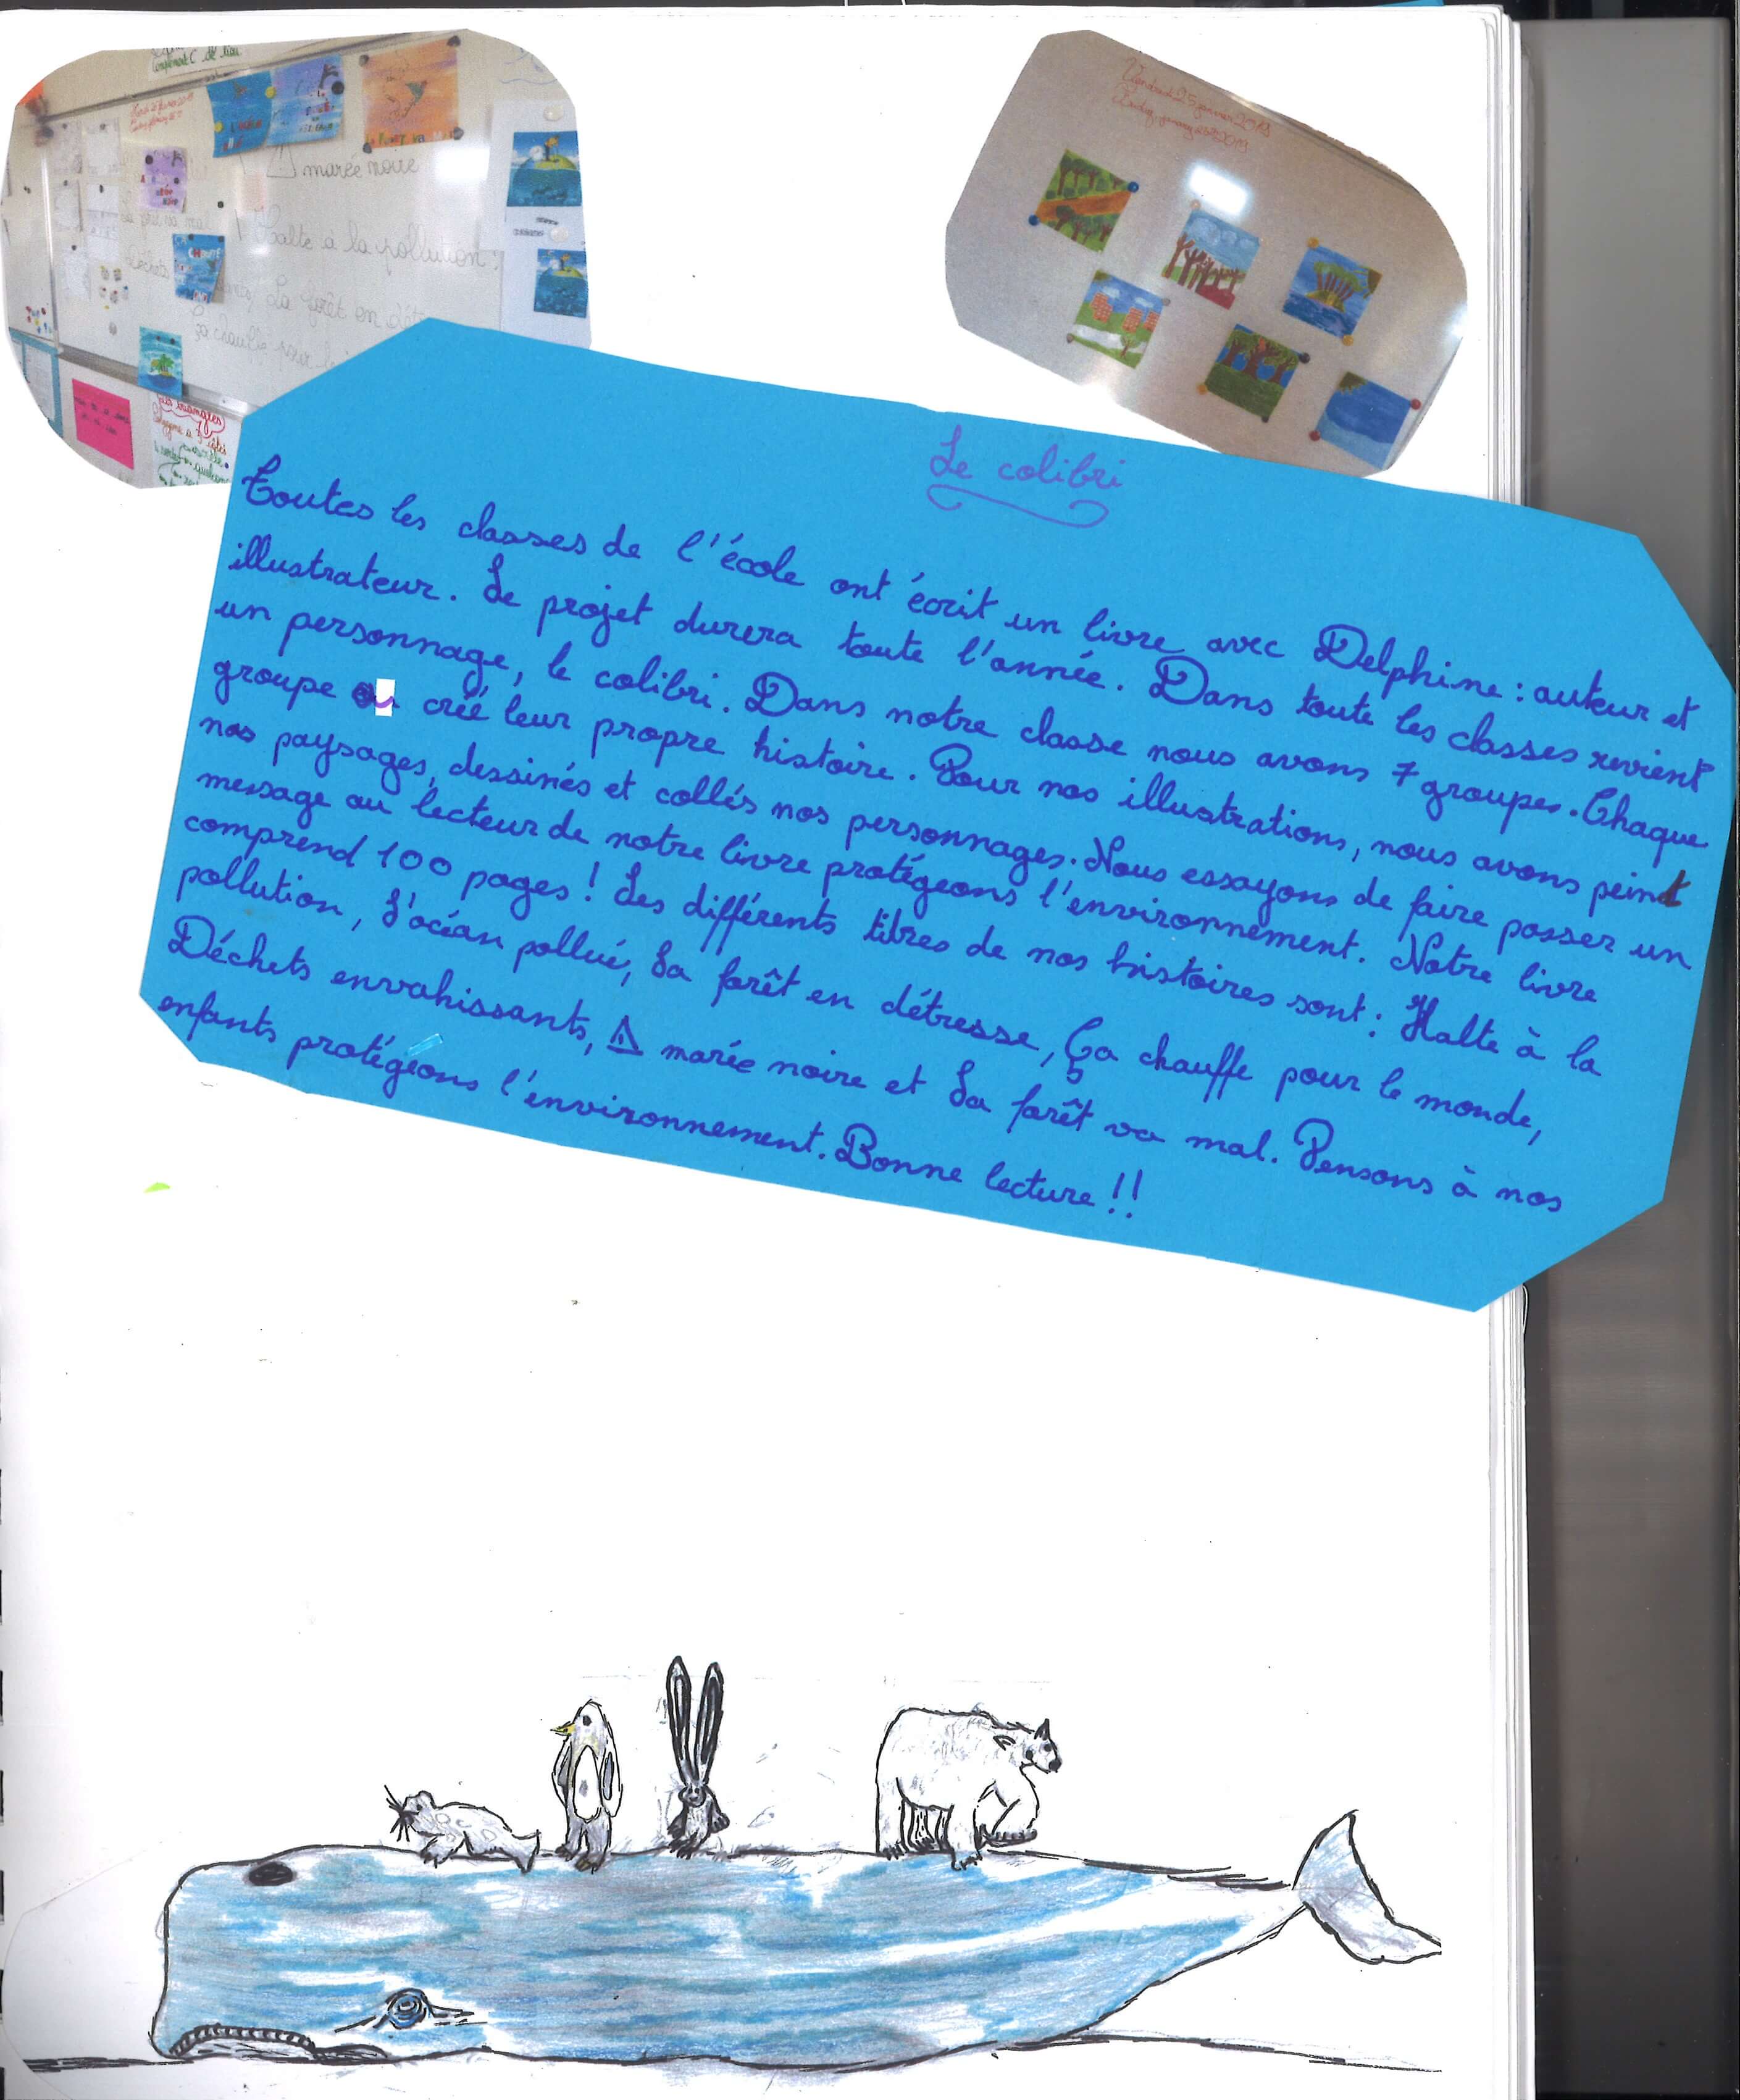 marée noire
Halte à la pollution
La forêt en
Vendredi 25 janvier 2019
Le colibri
Toutes les classes de l'école ont écrit un livre avec Delphine : auteur et
illustrateur. Le projet durera toute l'année. Dans toute les classes revient
un personnage, le colibri. Dans notre classe nous avons 7 groupes. Chaque
groupe a créé leur propre histoire. Pour nos illustrations, nous avons peint
nos paysages, dessinés et collés nos personnages. Nous essayons de faire passer un
message au lecteur de notre livre protégeons l'environnement. Notre livre
comprend 100 pages ! Les différents titres de nos histoires sont : Halte à la
pollution, L'océan pollué, La forêt en détresse, Ça chauffe pour le monde,
Déchets envahissants, ⚠ marée noire et La forêt va mal. Pensons à nos
enfants protégeons l'environnement. Bonne lecture !!